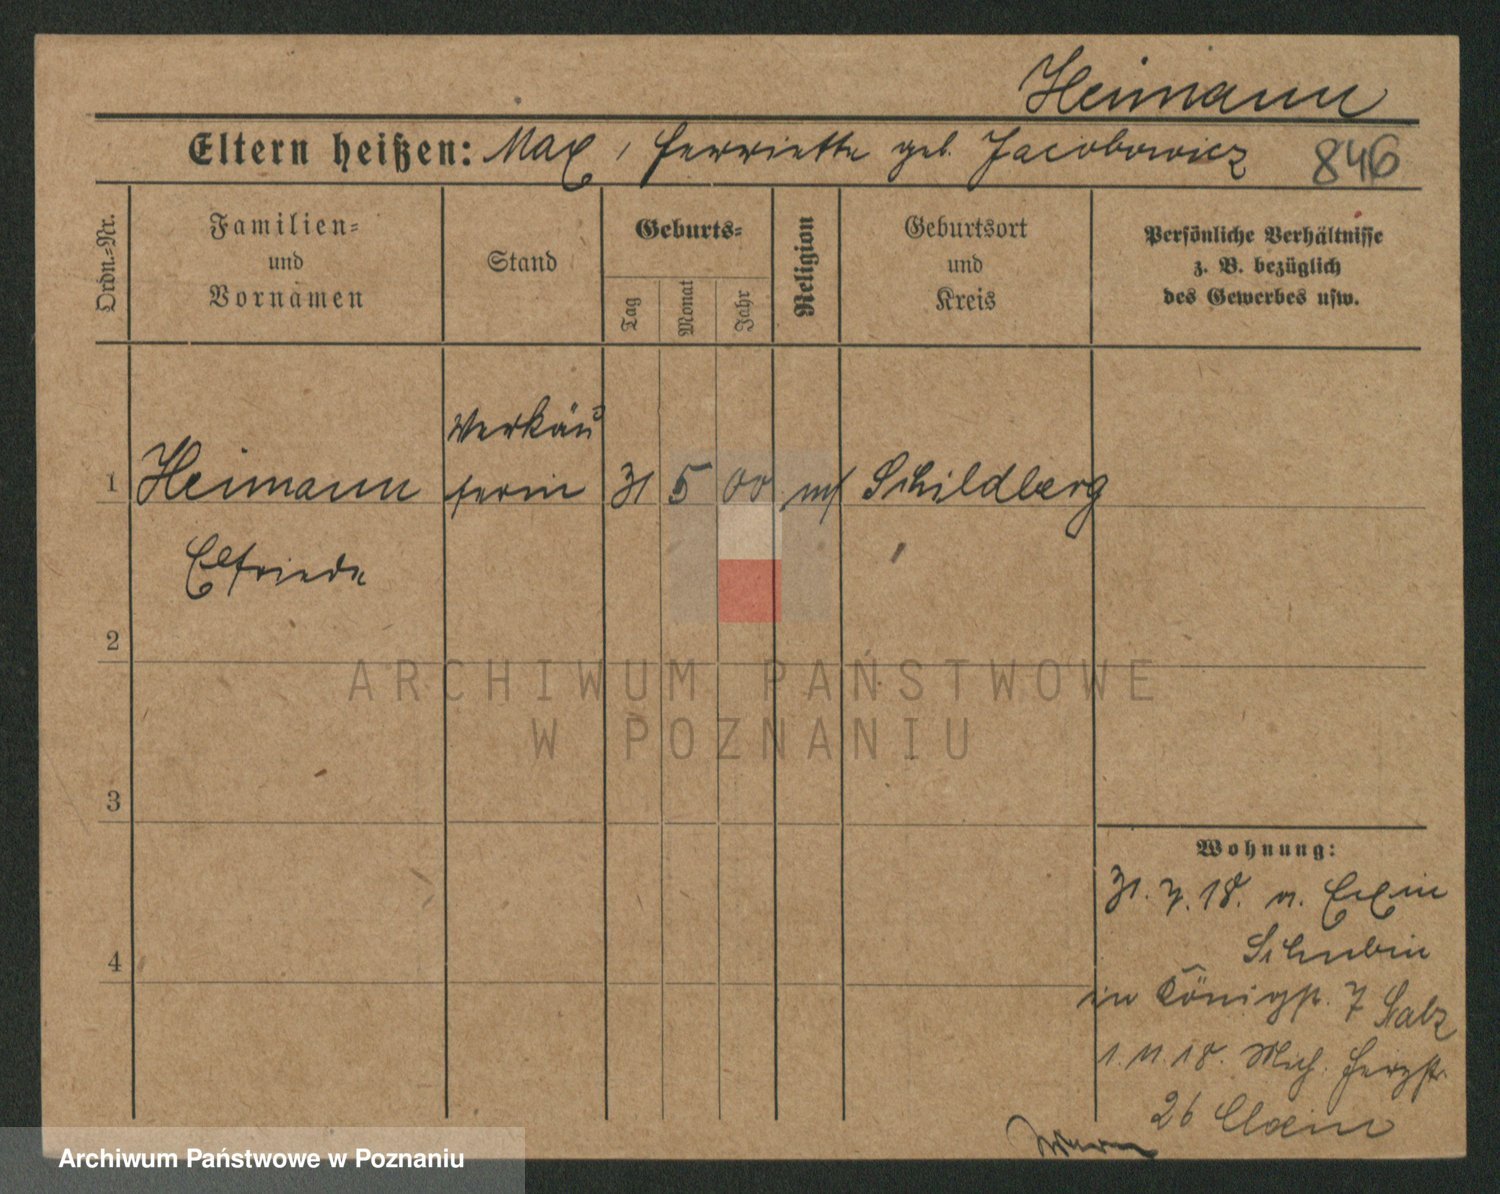 Heimann
Eltern heißen: Max, Henriette geb. Jacobowicz 846
Ordn.-Nr.
Familien-
und
Vornamen
Stand
Geburts-
Tag
Monat
Jahr
Religion
Geburtsort
und
Kreis
Persönliche Verhältnisse
z. B. bezüglich
des Gewerbes usw.
Verkäu
1 Heimann ferin 31 5 00 Schildberg
Elfriede
2
ARCHIWUM PAŃSTWOWE
W POZNANIU
3
Wohnung:
31. 7. 18. Exin
Schubin
4
in Königspl. 7
1. 11. 18.
26
Archiwum Państwowe w Poznaniu